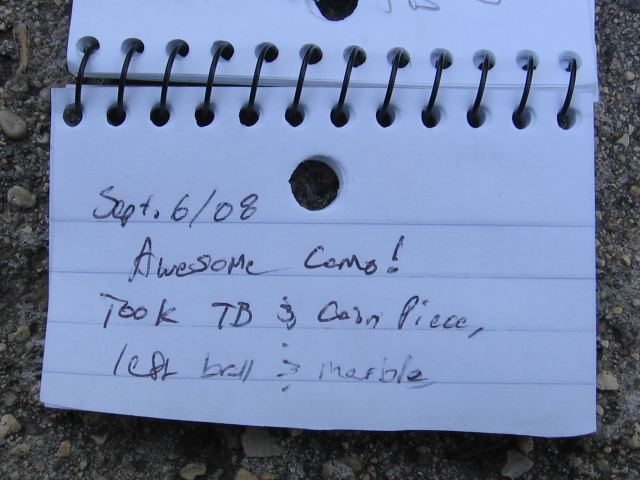 Sept. 6/08
Awesome Camo!
Took TB & Coin Piece,
left ball & marble